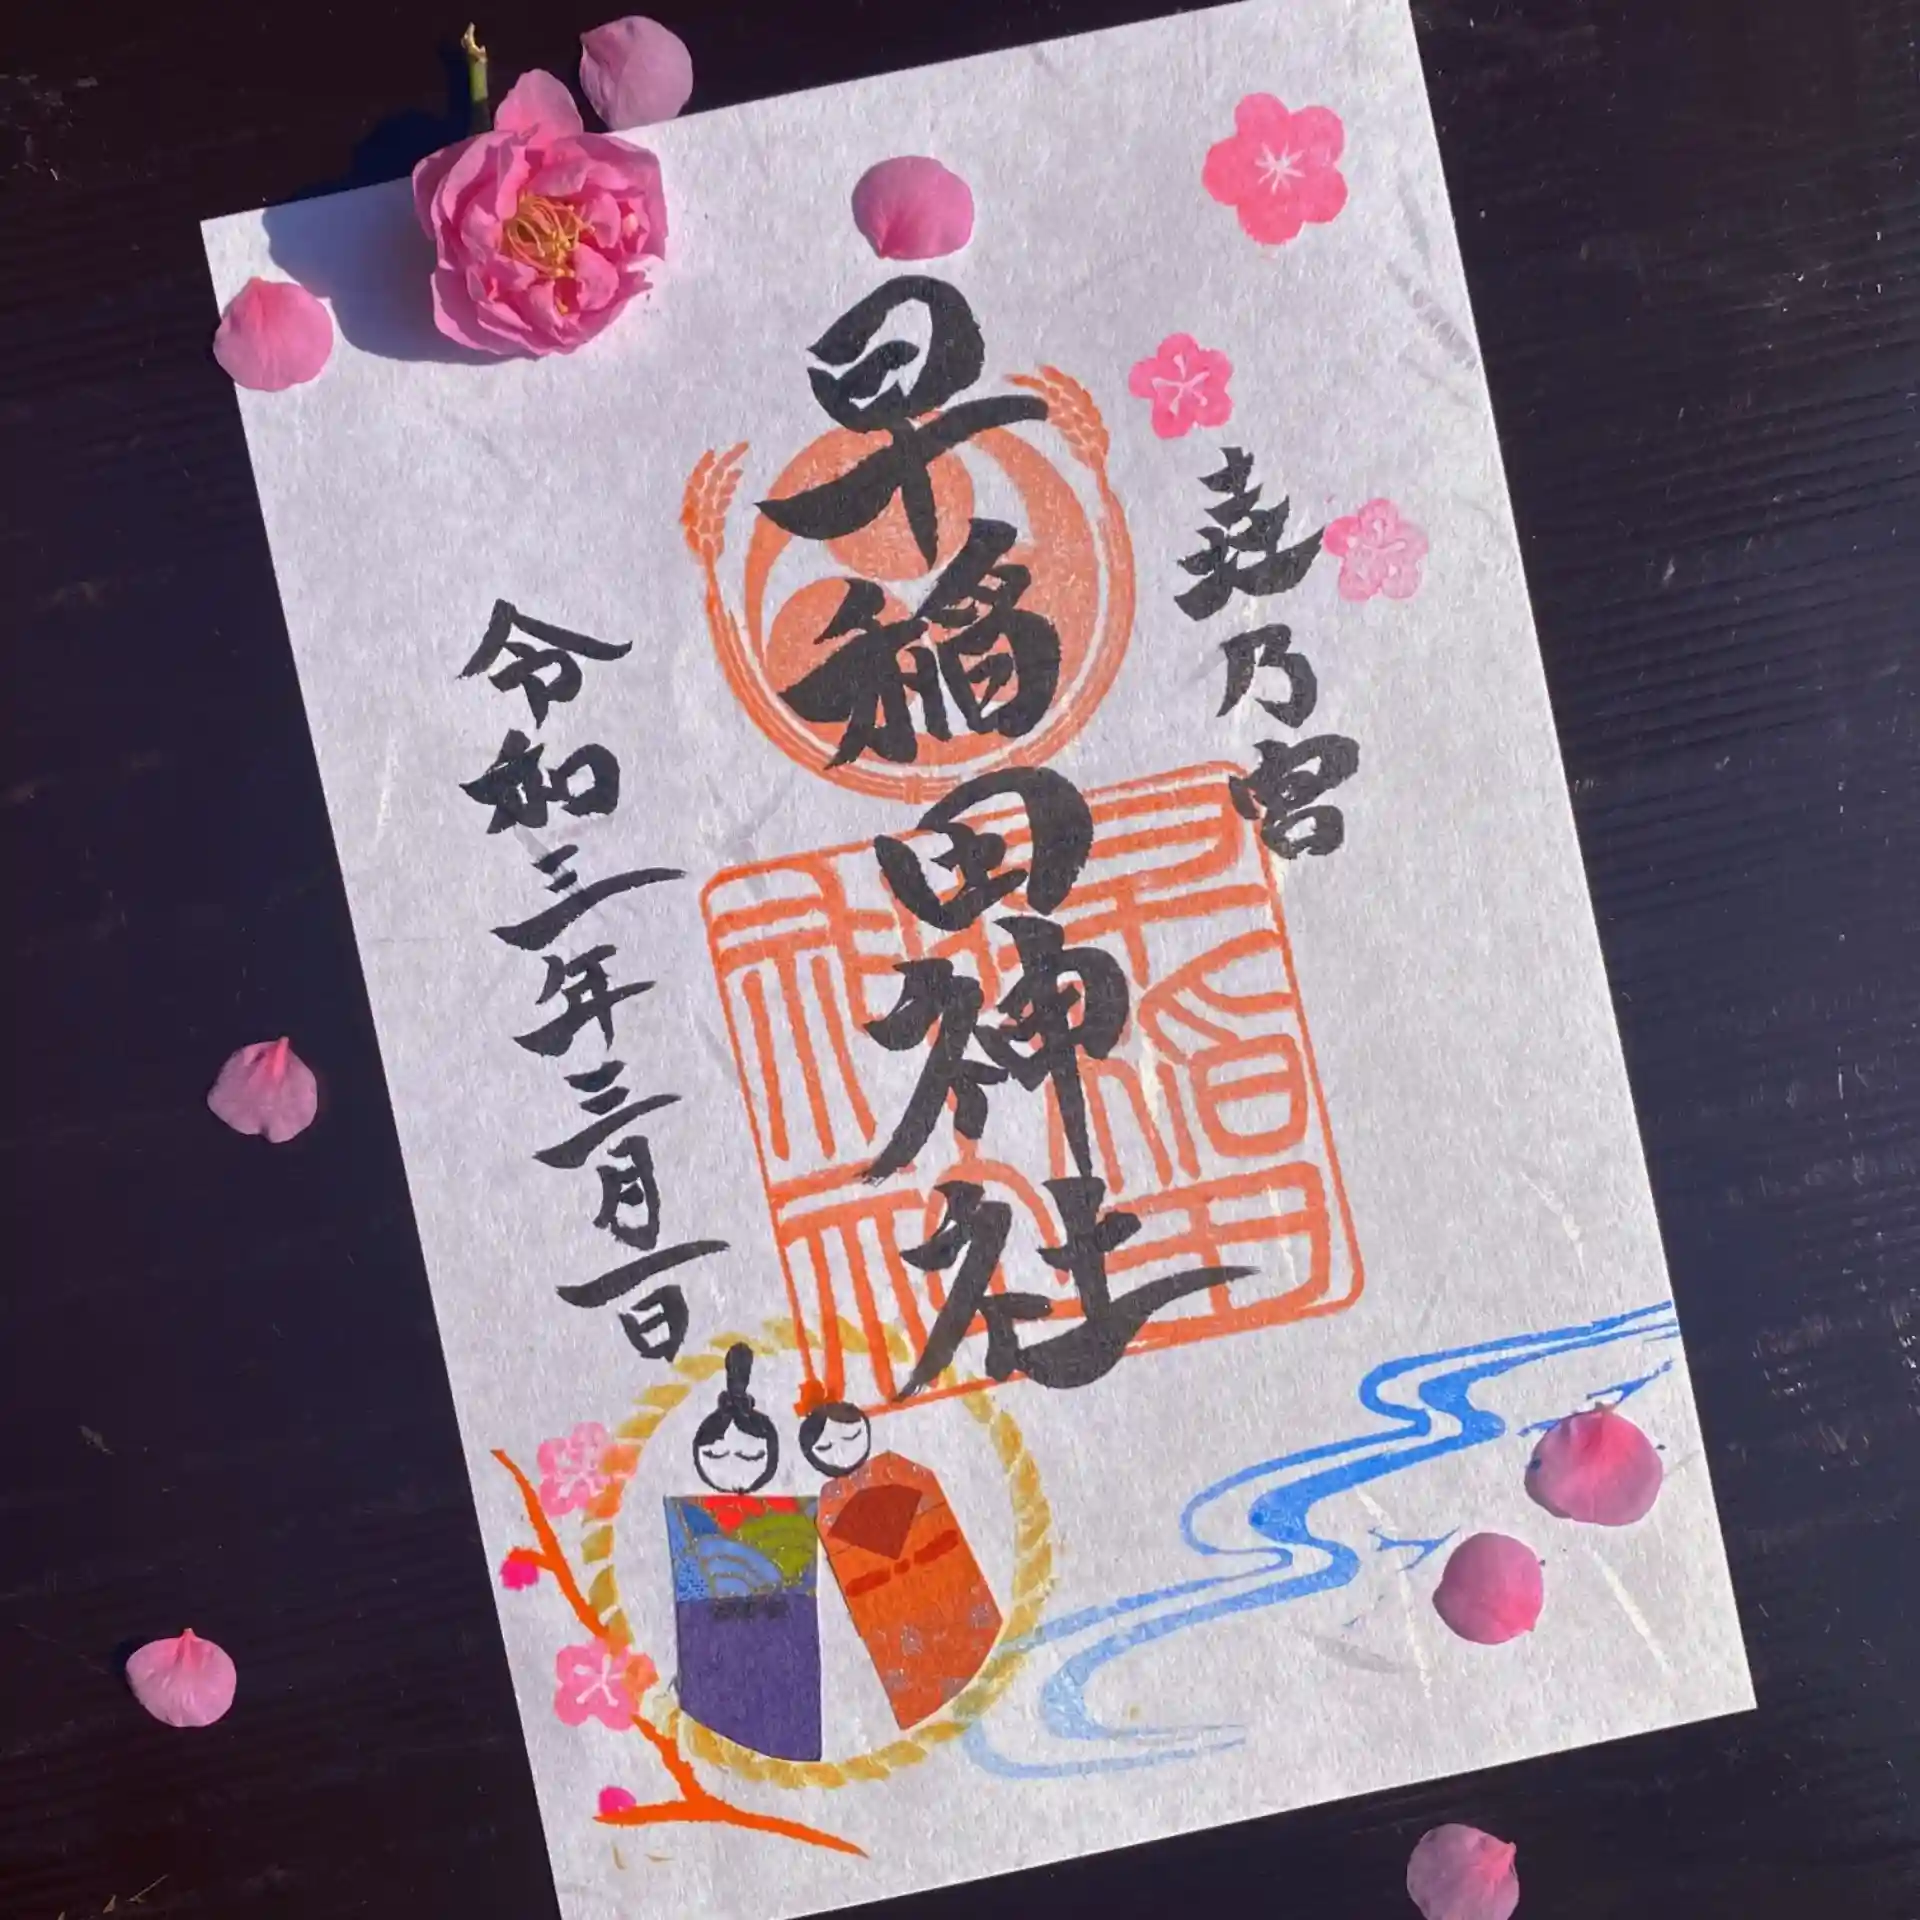 嘉乃宮
早稲田神社
令和三年三月一日
早稲田神社